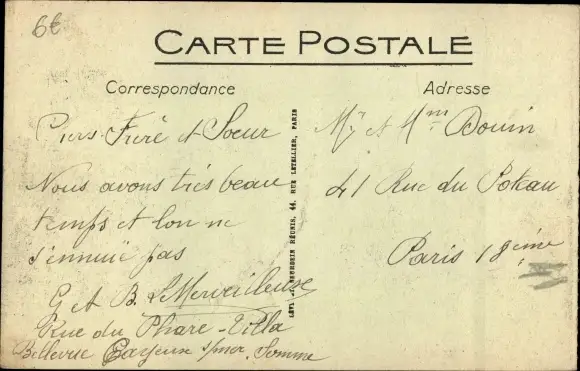 6€
CARTE POSTALE
Correspondance
Adresse
Frère et Soeur
Nous avons très beau
temps et lon ne
s'ennuie pas
G et B.
Rue du Phare - Villa
Bellevue Cayeux s/mer. Somme
LÉVY ET NEURDEIN RÉUNIS, 44, RUE LETELLIER, PARIS
Mr et Mme Douin
41 Rue du Poteau
Paris 18ème